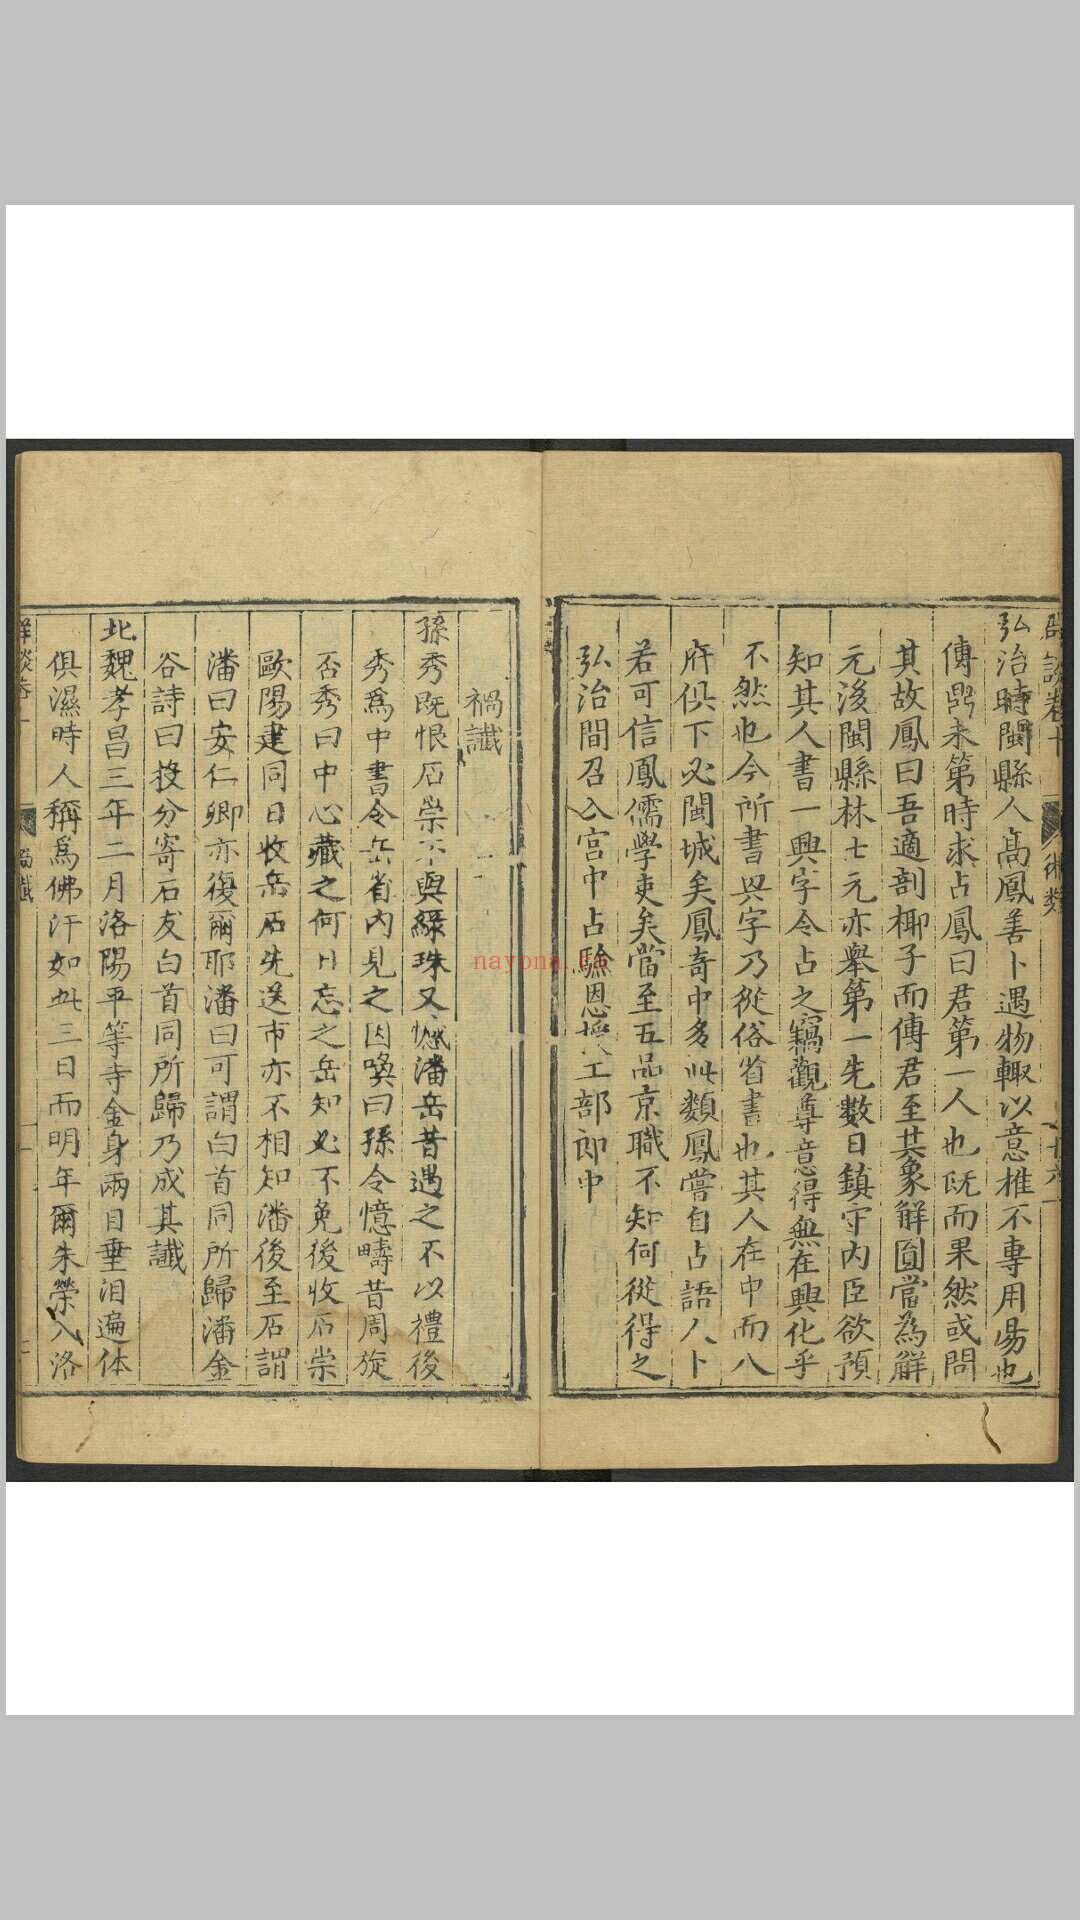 弘治時閩縣人高鳳善卜遇物輙以意推不專用易也
傳鼎未第時求占鳳曰君第一人也旣而果然或問
其故鳳曰吾適剖椰子而傳君至其象解圓當為解
元後閩縣林士元亦舉第一先數日鎮守內臣欲預
知其人書一興字令占之竊觀尊意得無在興化乎
不然也今所書興字乃從俗省書也其人在中而八
府俱下必閩城矣鳳奇中多此類鳳嘗自占語人卜
若可信鳳儒學吏矣當至五品京職不知何從得之
弘治間召入宮中占驗恩授工部郎中
術類
十六
禍讖
孫秀旣恨石崇不與緑珠又憾潘岳昔遇之不以禮後
秀爲中書令岳省內見之因喚曰孫令憶疇昔周旋
否秀曰中心藏之何日忘之岳知必不免後收石崇
歐陽建同日收岳石先送市亦不相知潘後至石謂
潘曰安仁卿亦復爾耶潘曰可謂白首同所歸潘金
谷詩曰投分寄石友白首同所歸乃成其讖
北魏孝昌三年二月洛陽平等寺金身兩目垂泪遍体
俱濕時人稱爲佛汗如此三日而明年爾朱榮入洛